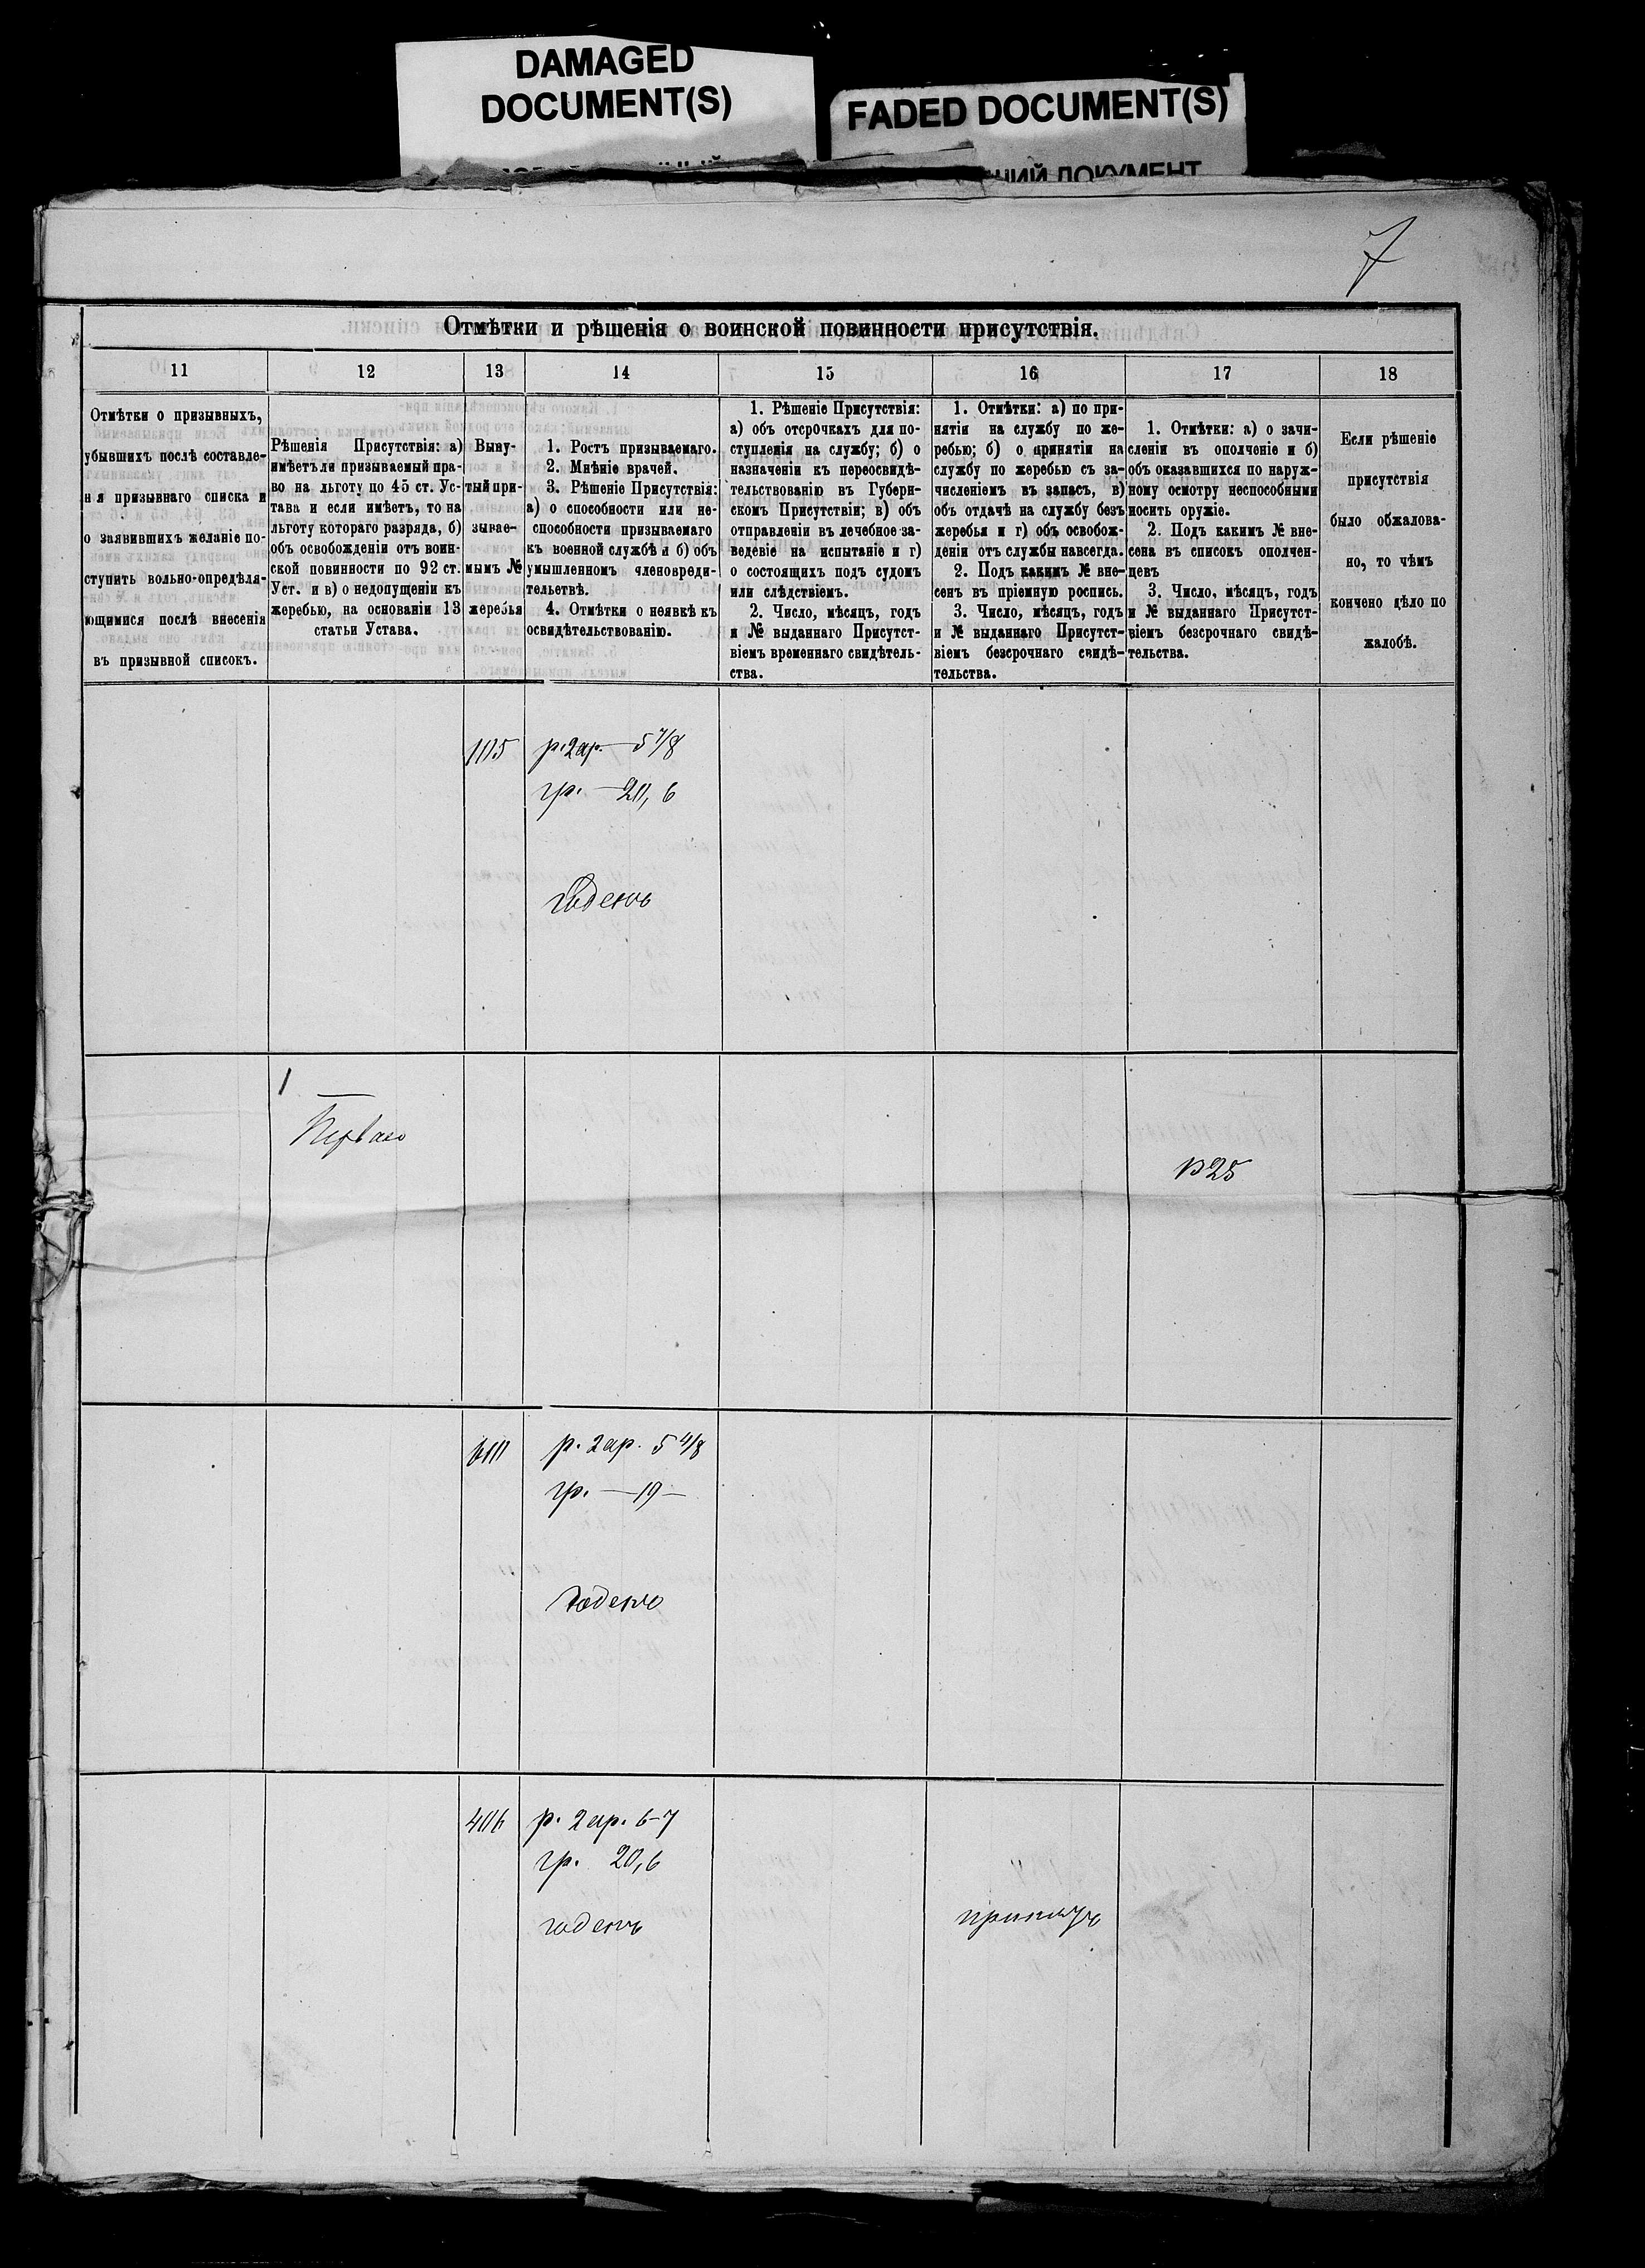 DAMAGED
DOCUMENT(S)
FADED DOCUMENT(S)
ДОКУМЕНТ
7
Отмѣтки и рѣшенія о воинской повинности присутствія.
11
12
13
14
15
16
17
18
Отмѣтки о призывныхъ,
убывшихъ послѣ составле-
нія призывнаго списка и
о заявившихъ желаніе по-
ступить вольно-опредѣля-
ющимися послѣ внесенія
въ призывной списокъ.
Рѣшенія Присутствія: а)
имѣетъ ли призываемый пра-
во на льготу по 45 ст. Ус-
тава и если имѣетъ, то на
льготу котораго разряда, б)
объ освобожденіи отъ воин-
ской повинности по 92 ст.
Уст. и в) о недопущеніи къ
жеребью, на основаніи 13
статьи Устава.
Выну-
тый при-
зывае-
мымъ №
жеребья
1. Ростъ призываемаго.
2. Мнѣніе врачей.
3. Рѣшеніе Присутствія:
а) о способности или не-
способности призываемаго
къ военной службѣ и б) объ
умышленномъ членовреди-
тельствѣ.
4. Отмѣтки о неявкѣ къ
освидѣтельствованію.
1. Рѣшеніе Присутствія:
а) объ отсрочкахъ для по-
ступленія на службу; б) о
назначеніи къ переосвидѣ-
тельствованію въ Губерн-
скомъ Присутствіи; в) объ
отправленіи въ лечебное за-
веденіе на испытаніе и г)
о состоящихъ подъ судомъ
или слѣдствіемъ.
2. Число, мѣсяцъ, годъ
и № выданнаго Присутст-
віемъ временнаго свидѣтель-
ства.
1. Отмѣтки: а) по при-
нятіи на службу по же-
ребью; б) о принятіи на
службу по жеребью съ за-
численіемъ въ запасъ, в)
объ отдачѣ на службу безъ
жеребья и г) объ освобож-
деніи отъ службы навсегда.
2. Подъ какимъ № вне-
сенъ въ пріемную роспись.
3. Число, мѣсяцъ, годъ
и № выданнаго Присутст-
віемъ безсрочнаго свидѣ-
тельства.
1. Отмѣтки: а) о зачи-
сленіи въ ополченіе и б)
объ оказавшихся по наруж-
ному осмотру неспособными
носить оружіе.
2. Подъ какимъ № вне-
сена въ списокъ ополчен-
цевъ
3. Число, мѣсяцъ, годъ
и № выданнаго Присутст-
віемъ безсрочнаго свидѣ-
тельства.
Если рѣшеніе
присутствія
было обжалова-
но, то чѣмъ
кончено дѣло по
жалобѣ.
р. 2 ар. — 5 7/8
гр. — 20,6
годенъ
1
Перваго
р. 2 ар. 5 4/8
гр. — 19 —
годенъ
406
р. 2 ар. 6-7
гр. 20,6
годенъ
принятъ